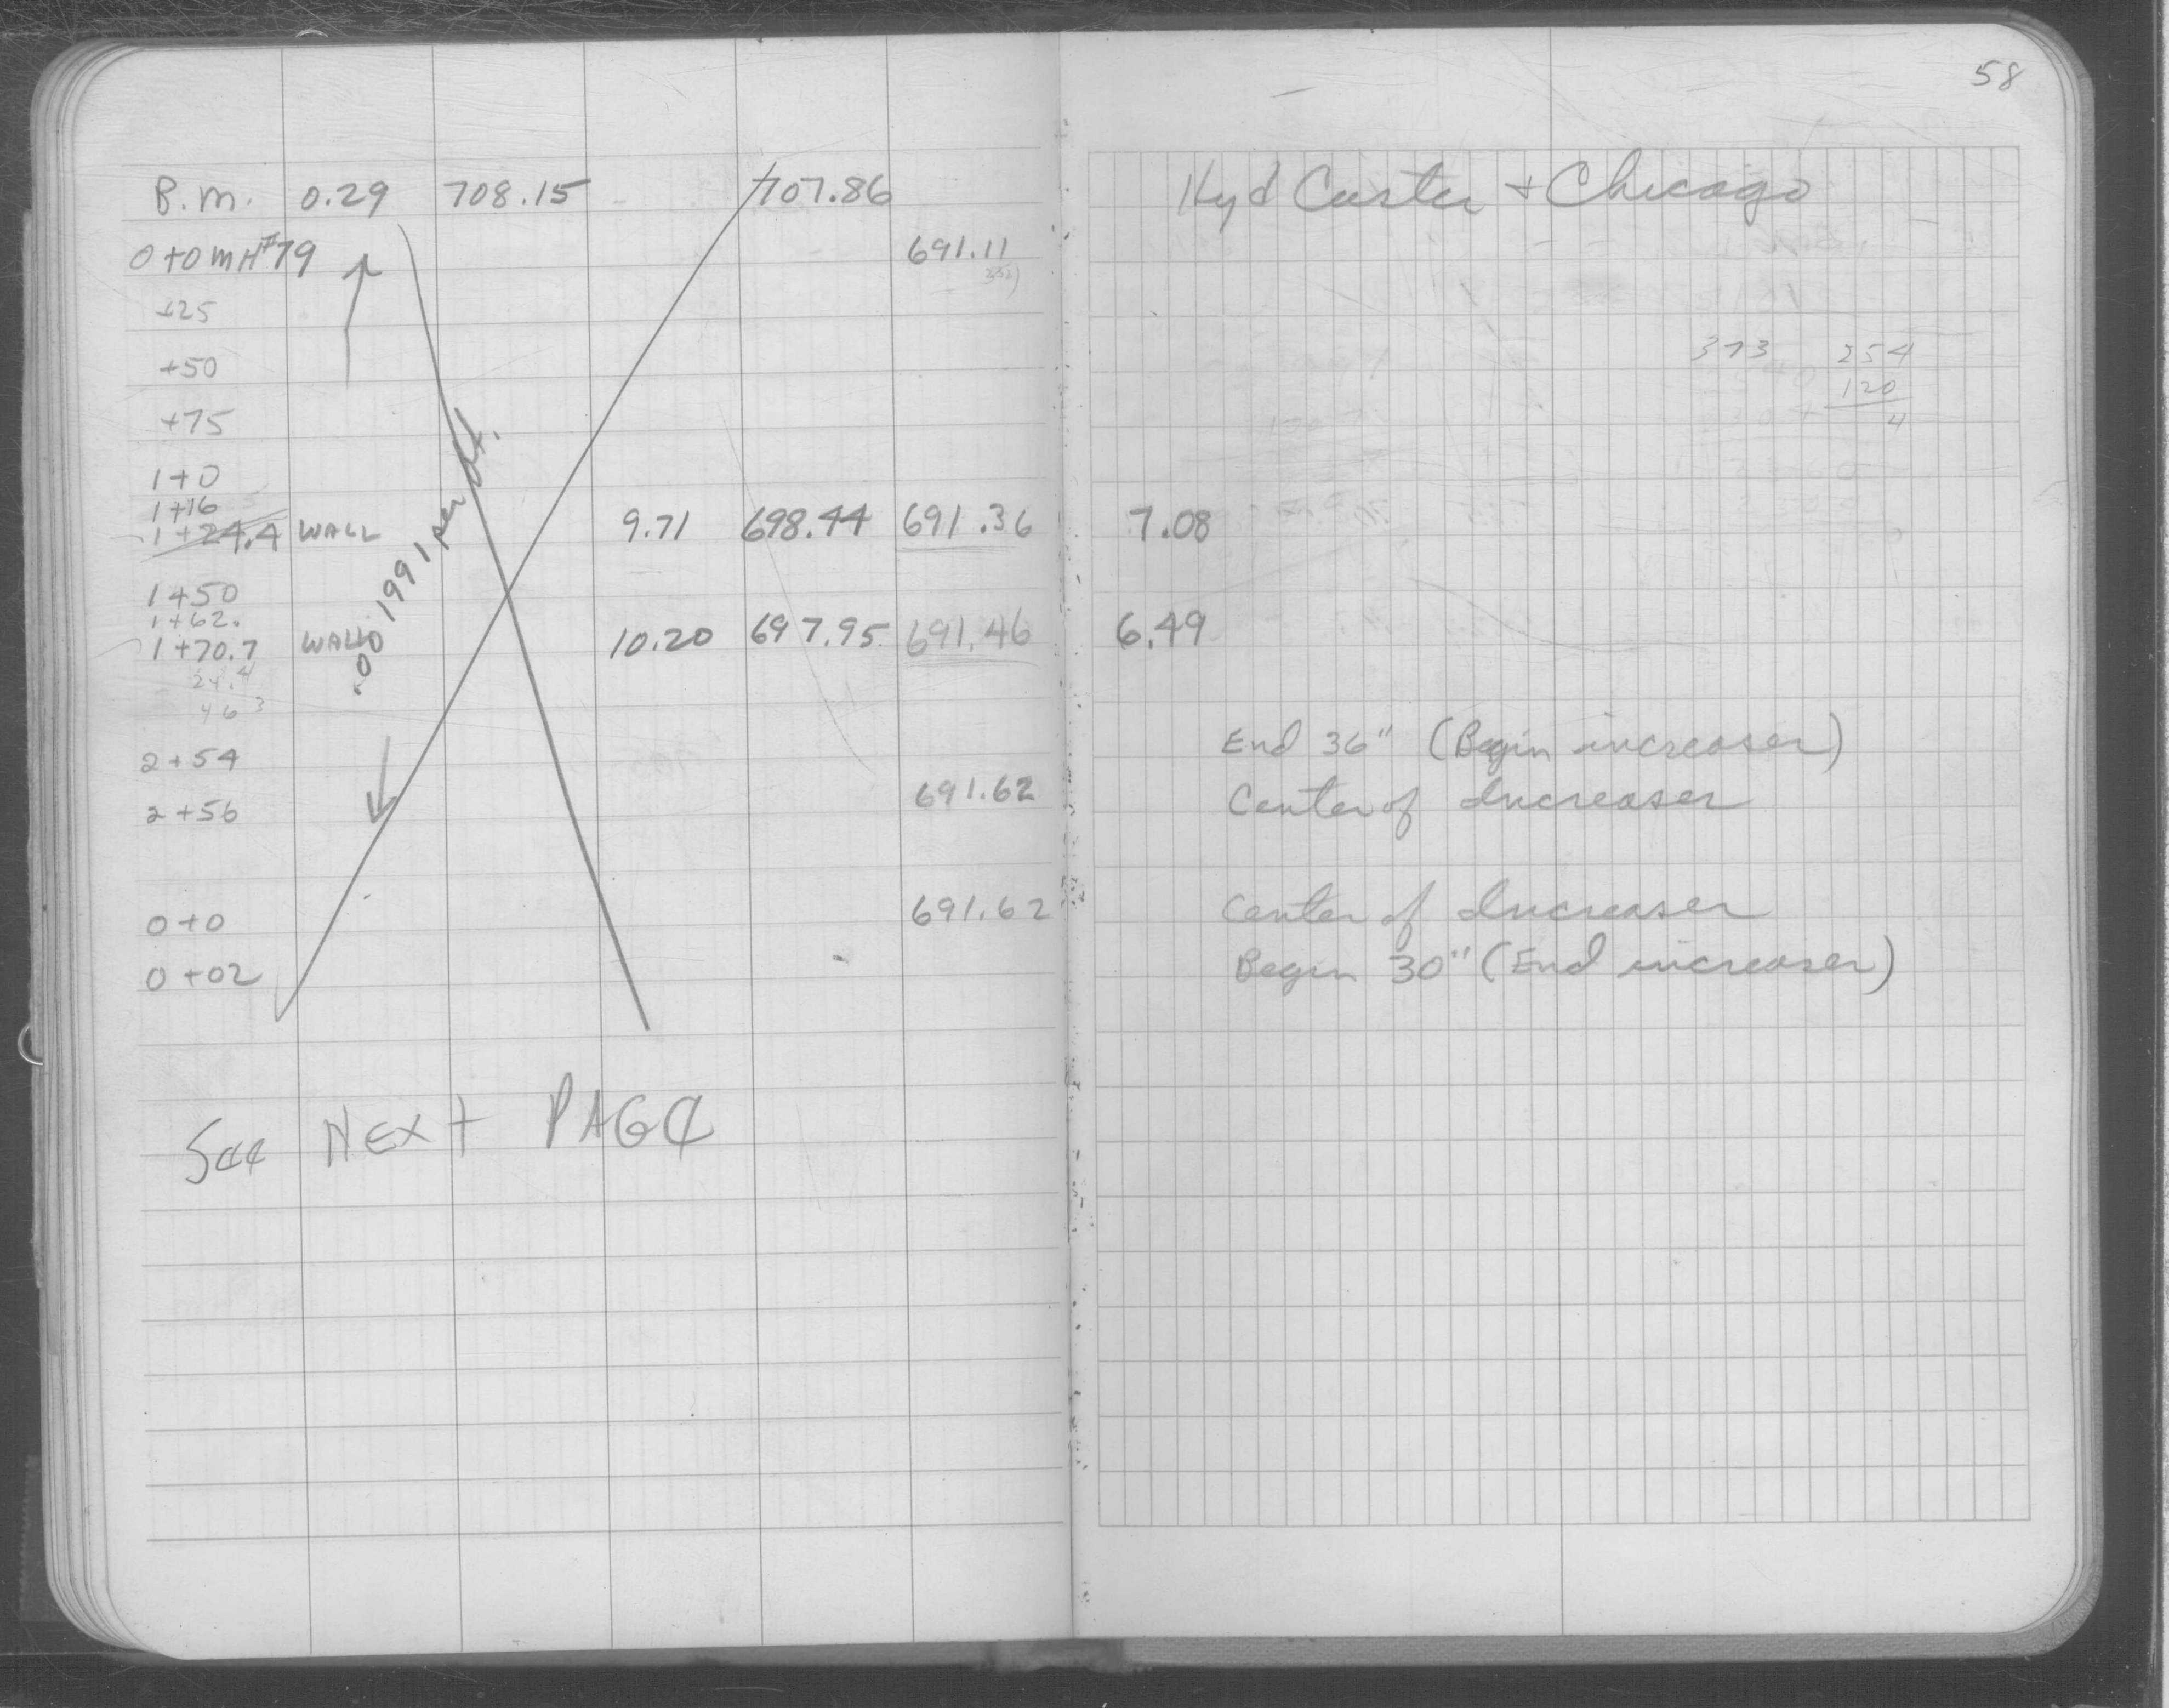 58
B.M. 0.29 708.15 707.86 Hyd Custer + Chicago
0+0 MH#79 691.11
+25
+50 373 254
120
4
+75
1+0
1+16
1+24.4 WALL 9.71 698.44 691.36 7.08
.001991 per ft.
1+50
1+62.
1+70.7 WALL 10.20 697.95 691.46 6.49
24.4
46 3
2+54 End 36" (Begin increaser)
2+56 691.62 Center of Increaser
0+0 691.62 Center of Increaser
0+02 Begin 30" (End increaser)
See NEXT PAGE